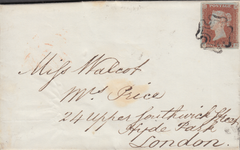 Miss Walcot
Mrs Price
24 Upper
Hyde Park
London.